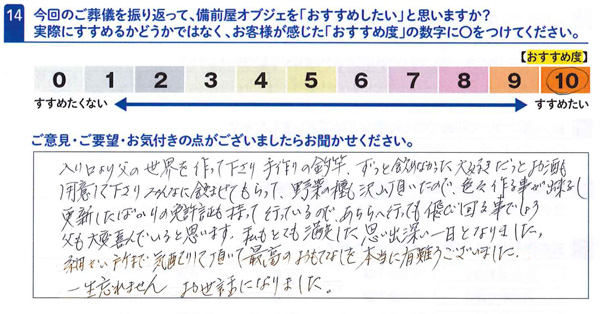 14 今回のご葬儀を振り返って、備前屋オブジェを「おすすめしたい」と思いますか?
実際にすすめるかどうかではなく、お客様が感じた「おすすめ度」の数字に○をつけてください。
【おすすめ度】
0 1 2 3 4 5 6 7 8 9 10
すすめたくない すすめたい
ご意見・ご要望・お気付きの点がございましたらお聞かせください。
入り口より父の世界を作って下さり 手作りの釣竿、ずっと飲めなかった大好きだったお酒も
用意して下さり みんなに飲ませてもらって、野菜の種も沢山頂いたので、色々作る事が出来るし
更新したばかりの免許証も持って行っているので、あちらへ行っても飛び回る事でしょう
父も大変喜んでいると思います。私もとても満足した思い出深い一日となりました。
細い所まで気配りして頂いて最高のおもてなしを本当に有難うございました。
一生忘れません お世話になりました。